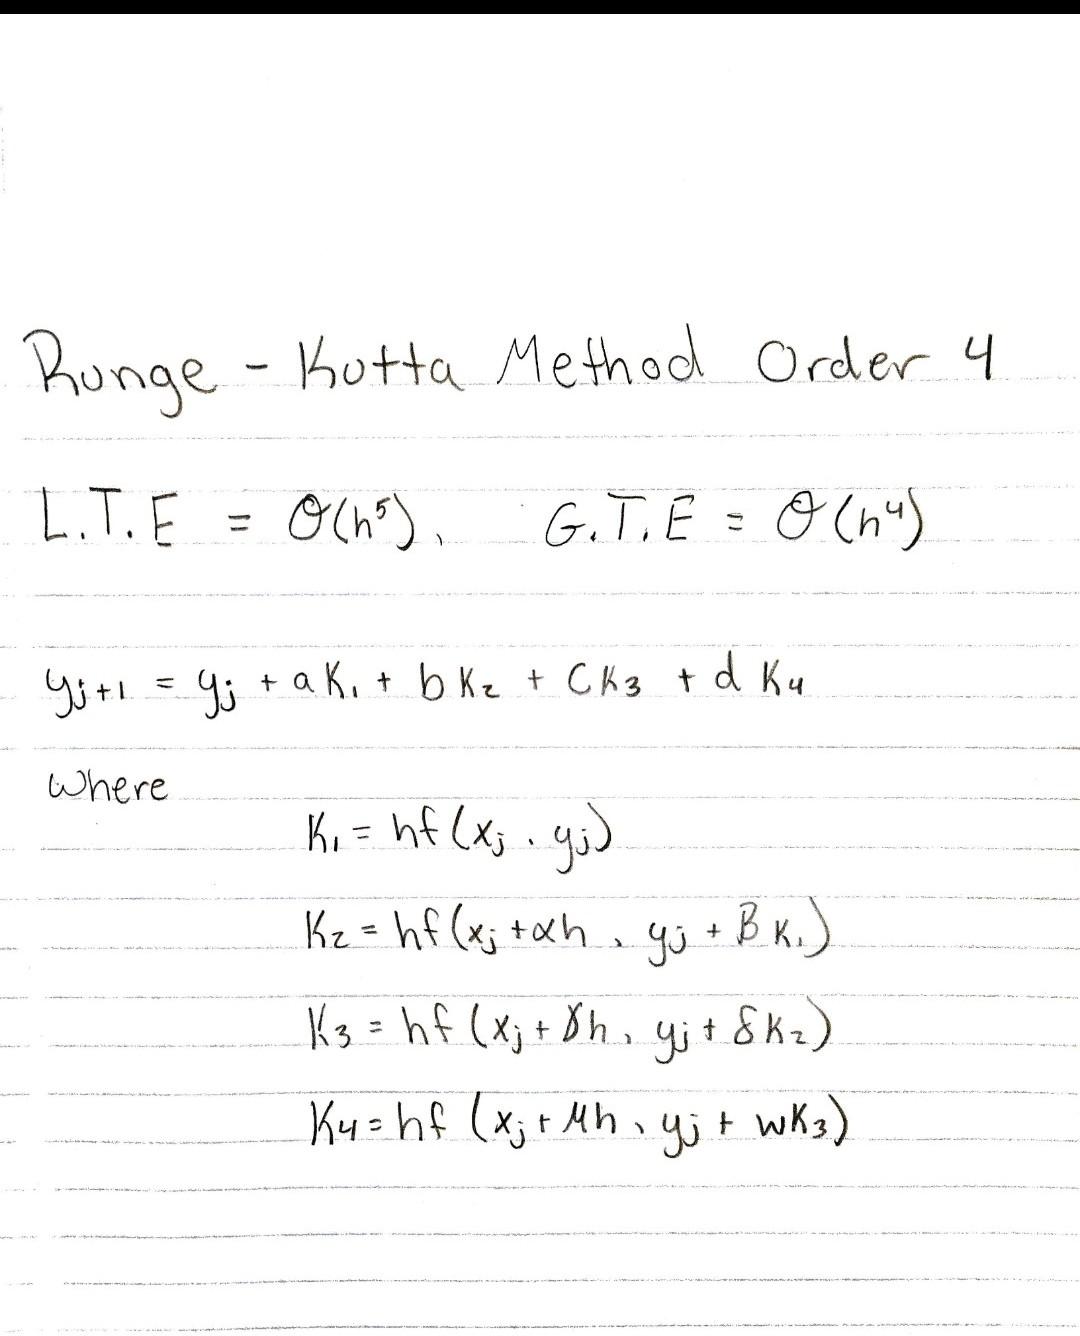 Runge - Kutta Method Order 4
L.T.E = O(h⁵), G.T.E = O(h⁴)
yⱼ₊₁ = yⱼ + aK₁ + bK₂ + cK₃ + dK₄
where
K₁ = hf(xⱼ, yⱼ)
K₂ = hf(xⱼ + αh, yⱼ + βK₁)
K₃ = hf(xⱼ + γh, yⱼ + δK₂)
K₄ = hf(xⱼ + μh, yⱼ + wK₃)